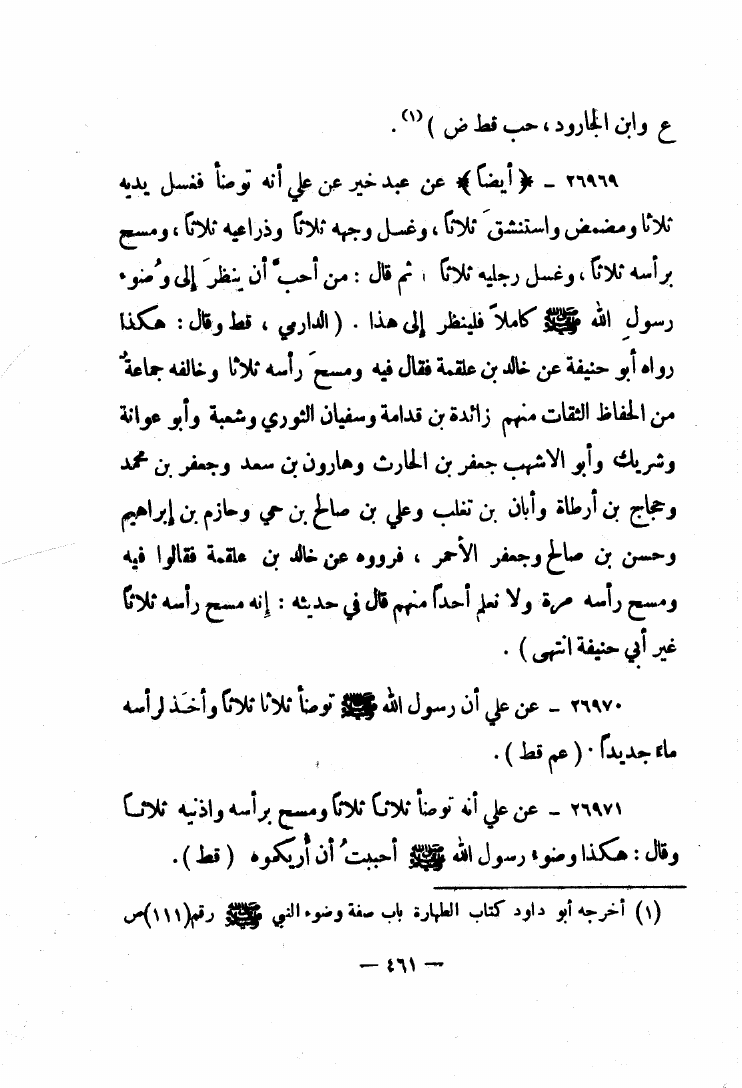 ع وابن الجارود، حب قط ض )(١).
٢٦٩٦٩ – ﴿ أيضاً ﴾ عن عبد خير عن علي أنه توضأ فغسل يديه
ثلاثا ومضمض واستنشقَ ثلاثاً، وغسل وجهه ثلاثاً وذراعيه ثلاثاً، ومسح
برأسه ثلاثاً، وغسل رجليه ثلاثاً ، ثم قال : من أحبَّ أن ينظرَ إلى وُضوء
رسولِ الله ﷺ كاملاً فلينظر إلى هذا . ( الدارمي ، قط وقال : هكذا
رواه أبو حنيفة عن خالد بن علقمة فقال فيه ومسحَ رأسه ثلاثا وخالفه جماعةٌ
من الحفاظ الثقات منهم زائدة بن قدامة وسفيان الثوري وشعبة وأبو عوانة
وشريك وأبو الاشهب جعفر بن الحارث وهارون بن سعد وجعفر بن محمد
وحجاج بن أرطاة وأبان بن تغلب وعلي بن صالح بن حي وحازم بن إبراهيم
وحسن بن صالح وجعفر الأحمر ، فرووه عن خالد بن علقمة فقالوا فيه
ومسح رأسه مرة ولا نعلم أحداً منهم قال في حديثه : إنه مسح رأسه ثلاثاً
غير أبي حنيفة انتهى ) .
٢٦٩٧٠ – عن علي أن رسول الله ﷺ توضأ ثلاثا ثلاثاً وأخَذ لرأسه
ماءً جديداً . ( عم قط ) .
٢٦٩٧١ – عن علي أنه توضأ ثلاثاً ثلاثاً ومسح برأسه واذنيه ثلاثاً
وقال : هكذا وضوء رسول الله ﷺ أحببتُ أن أُريكموه ( قط ) .
(١) أخرجه أبو داود كتاب الطهارة باب صفة وضوء النبي ﷺ رقم (١١١) ص
– ٤٦١ –